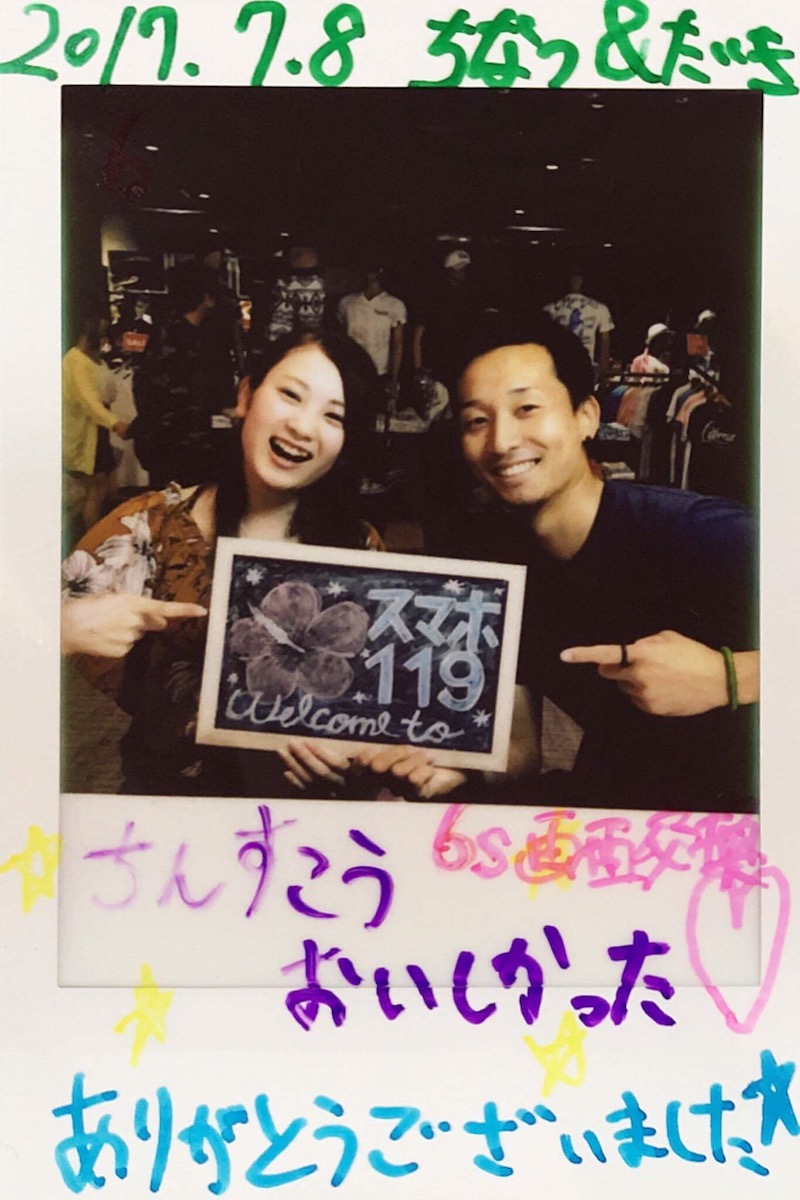 2017.7.8 ちなつ&だいき
スマホ
119
Welcome to
ちんすこう
6s画面交換
おいしかった
ありがとうございました